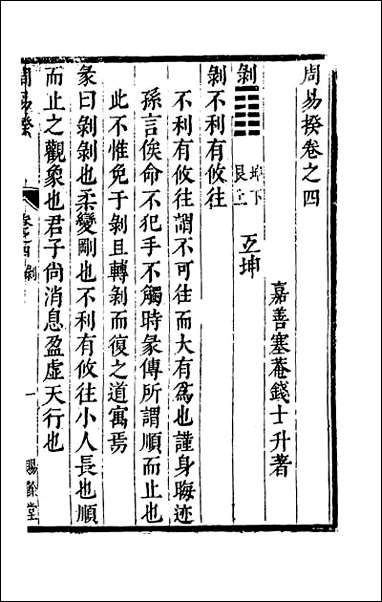 周易揆卷之四
嘉善塞菴錢士升著
剝
坤下
艮上
互坤
剝不利有攸往
不利有攸往謂不可往而大有為也謹身晦迹
孫言俟命不犯手不觸時彖傳所謂順而止也
此不惟免于剝且轉剝而復之道寓焉
彖曰剝剝也柔變剛也不利有攸往小人長也順
而止之觀象也君子尚消息盈虛天行也
周易揆
卷之四 剝
一
賜餘堂